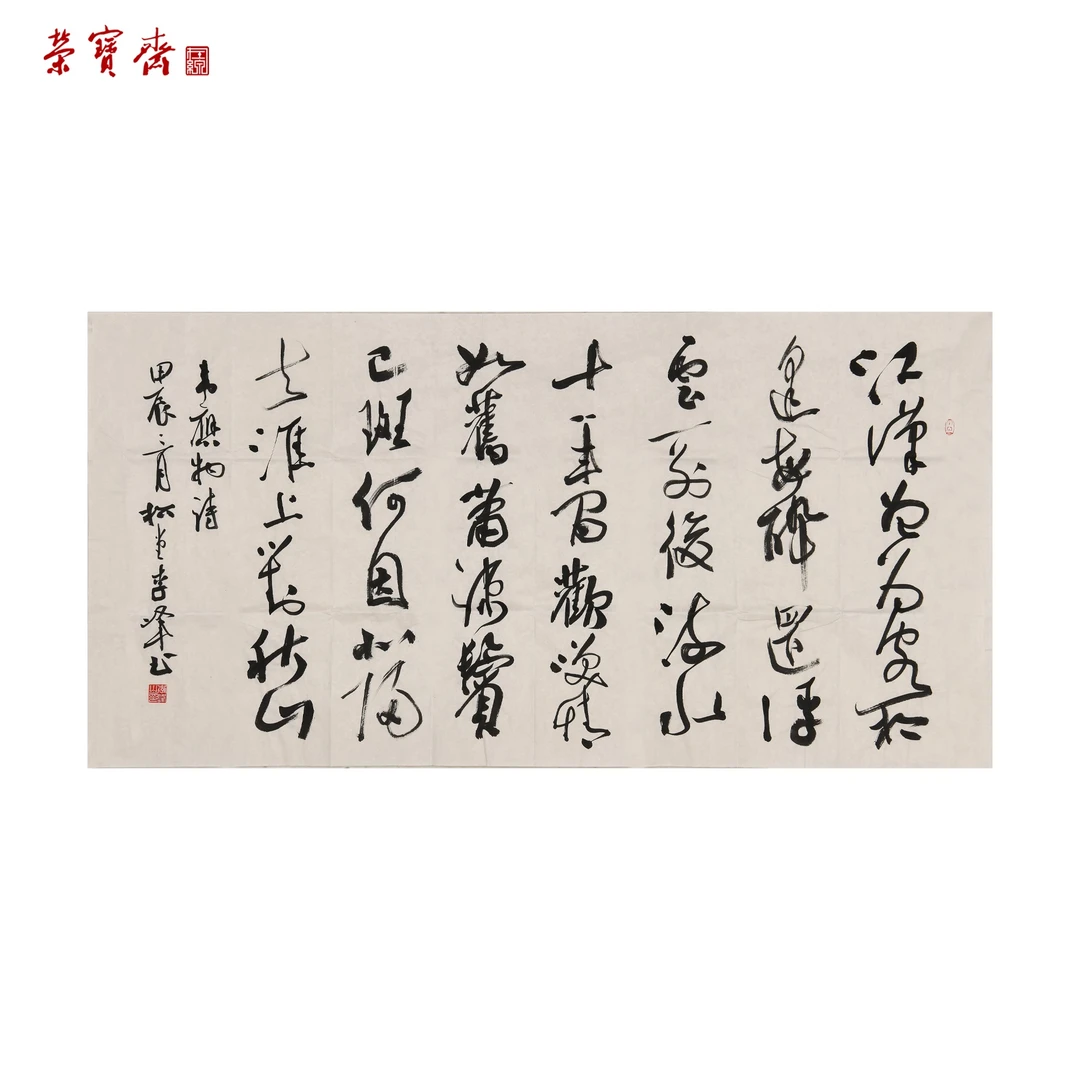 榮寶齋
江漢曾為客相
逢每醉還浮
雲一別後流水
十年間歡笑情
如舊蕭疎鬢
已斑何因北歸
去淮上對秋山
韋應物詩
甲辰月堂李峰書